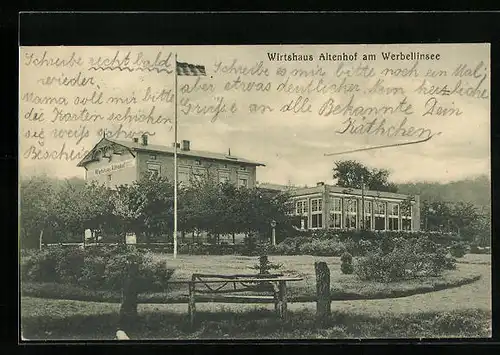 Wirtshaus Altenhof am Werbellinsee
Schreibe recht bald
wieder.
Mama soll mir bitte
die Karten schicken
sie weiß schon
Bescheid
Schreibe es mir bitte noch ein Mal,
aber etwas deutlicher. Mein herzliche
Grüße an alle Bekannte Dein
Käthchen